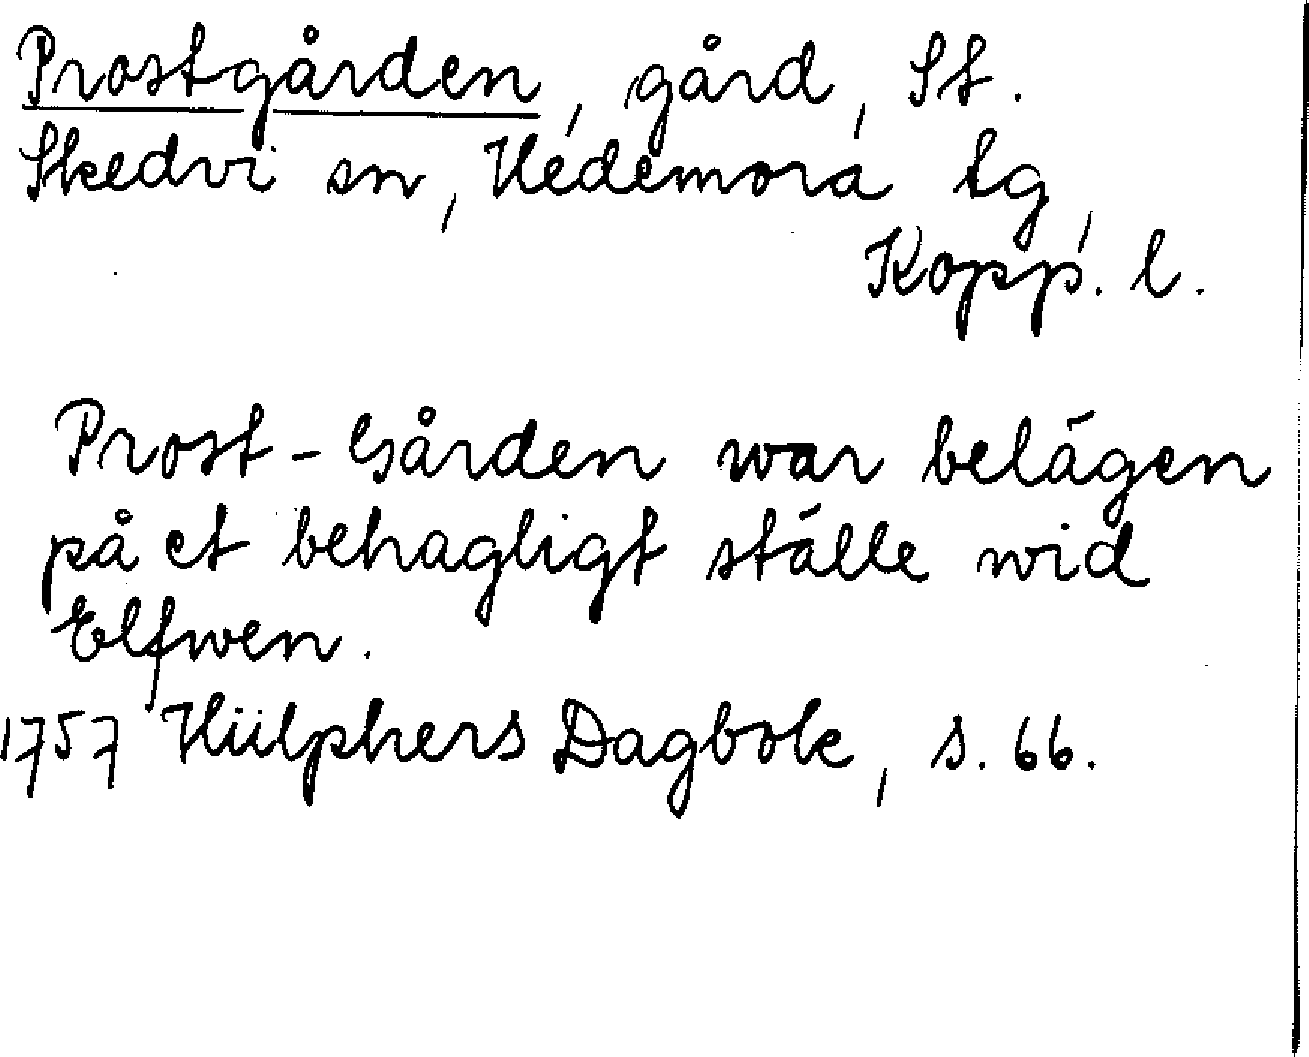 Prostgården, gård, St.
Skedvi sn, Hedemora tg,
Kopp. l.
Prost-Gården war belägen
på et behagligt ställe wid
Elfwen.
1757 Hülphers Dagbok, s. 66.